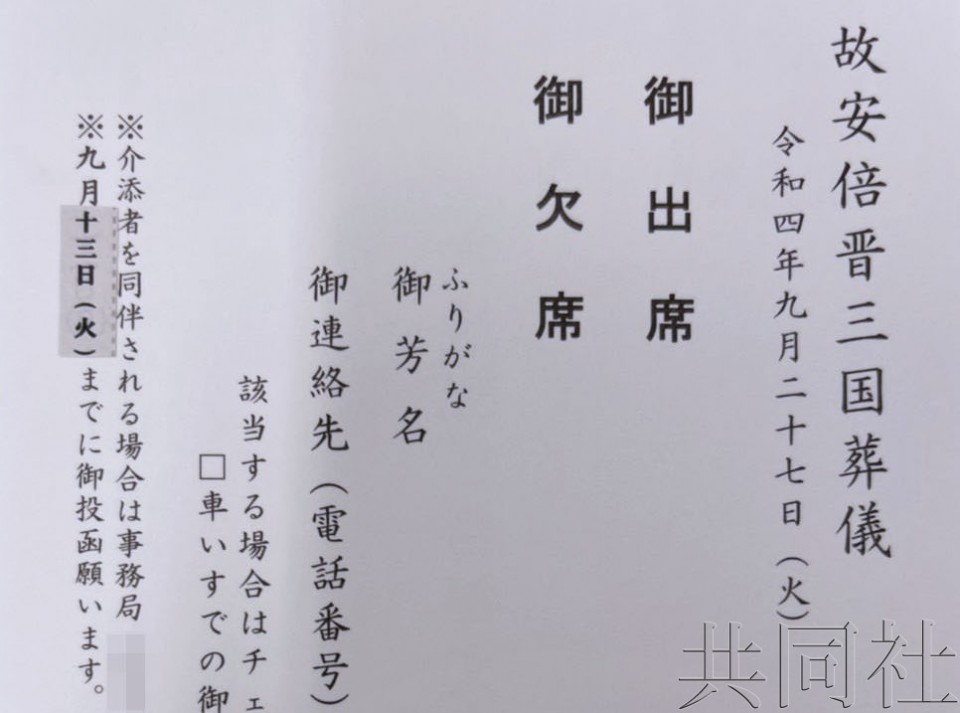 故安倍晋三国葬儀
令和四年九月二十七日(火)
御出席
御欠席
ふりがな
御芳名
御連絡先(電話番号)
該当する場合はチェ
□車いすでの御
※介添者を同伴される場合は事務局
※九月十三日(火)までに御投函願います。
共同社